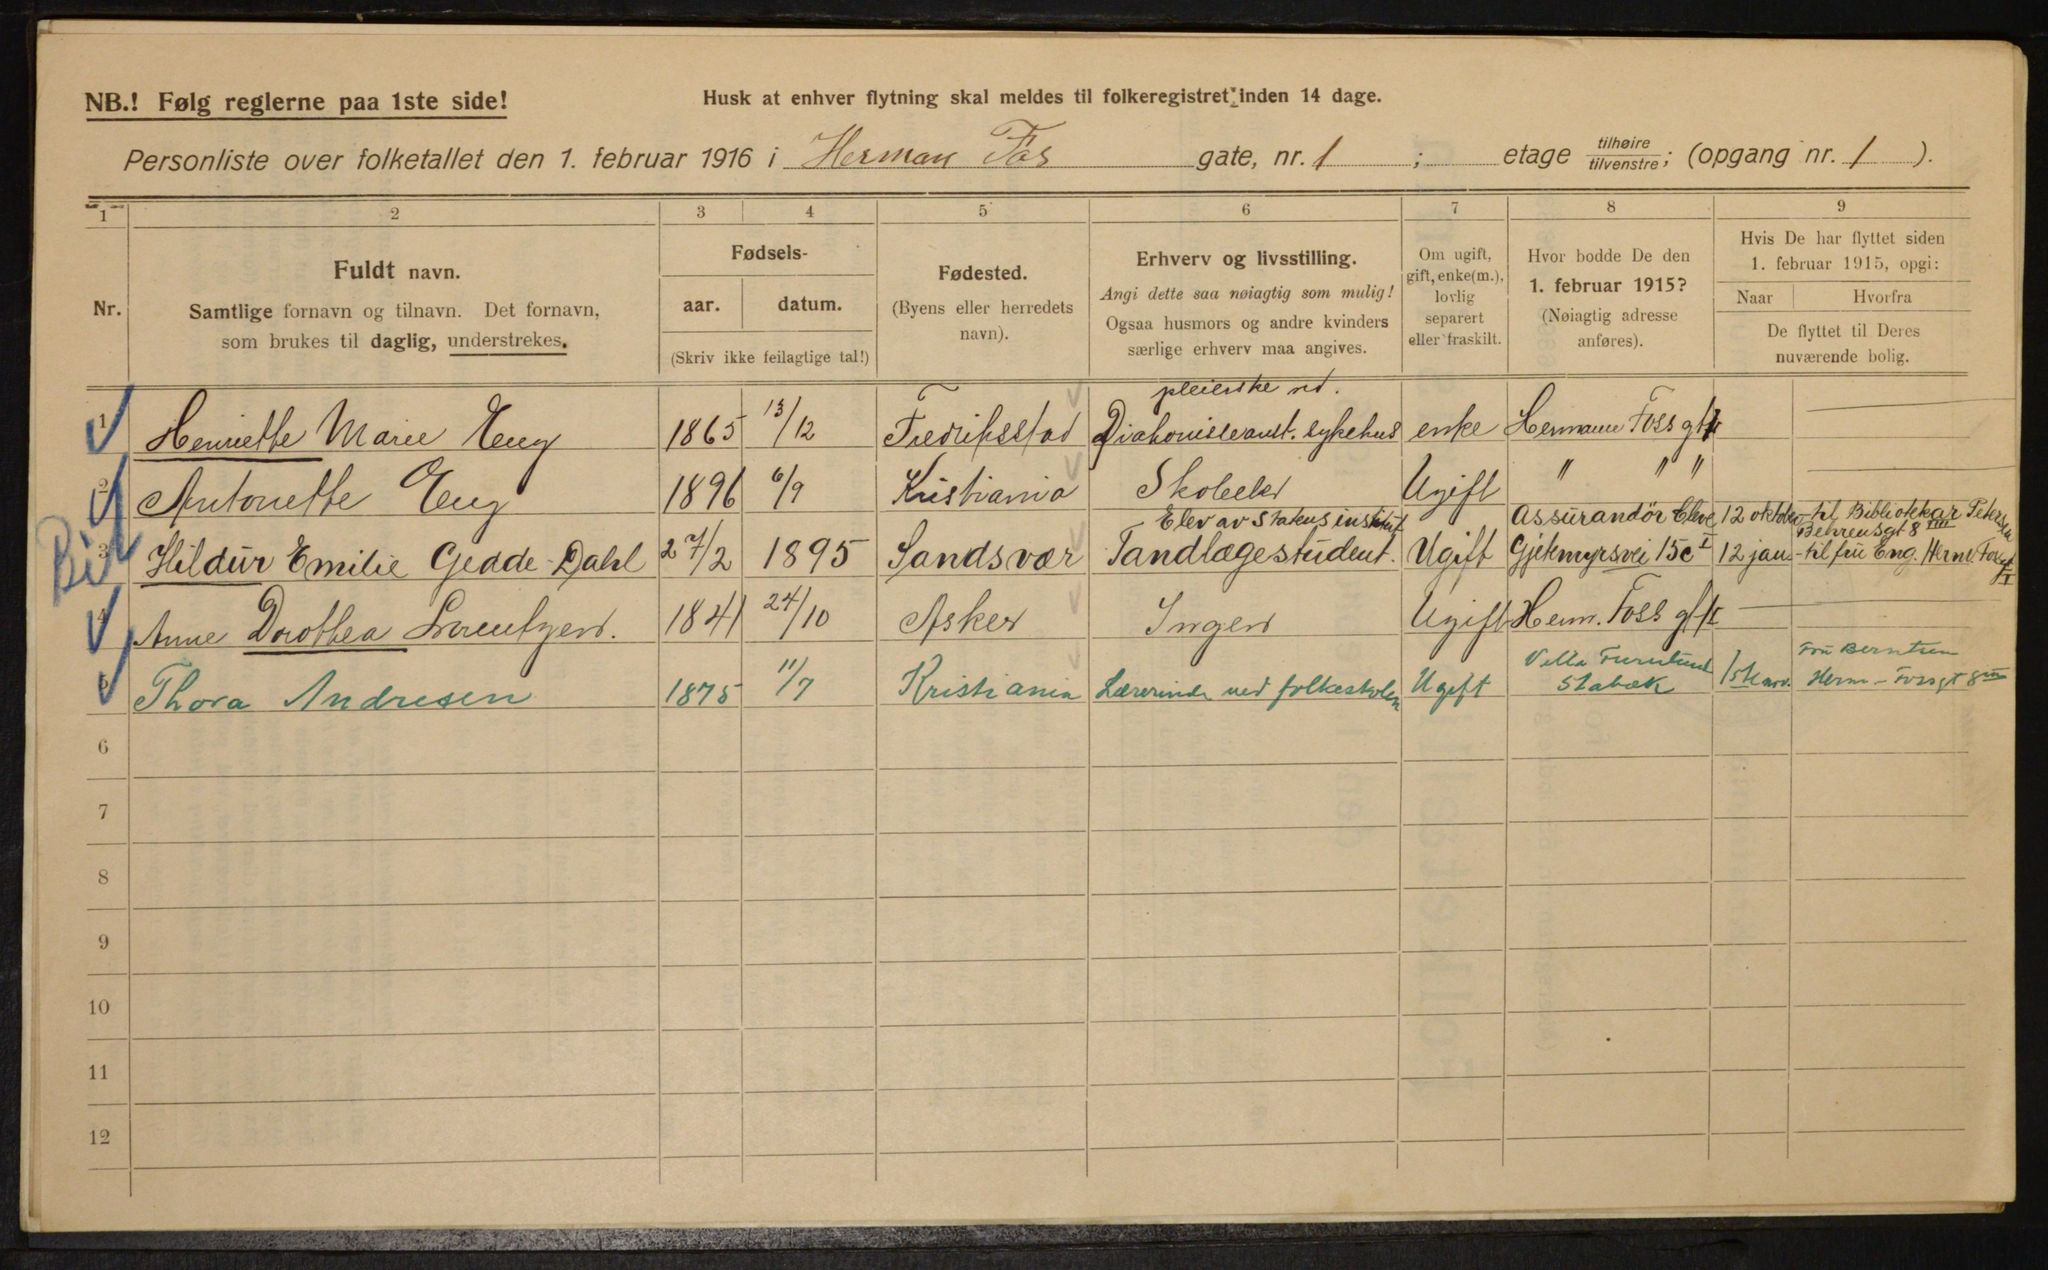 NB.! Følg reglerne paa 1ste side!
Husk at enhver flytning skal meldes til folkeregistret inden 14 dage.
Personliste over folketallet den 1. februar 1916 i Herman Fos gate, nr. 1 ; etage tilhøire/tilvenstre; (opgang nr. 1 ).
1 2 3 4 5 6 7 8 9
Nr.
Fuldt navn.
Samtlige fornavn og tilnavn. Det fornavn,
som brukes til daglig, understrekes.
Fødsels-
aar. datum.
(Skriv ikke feilagtige tal!)
Fødested.
(Byens eller herredets
navn).
Erhverv og livsstilling.
Angi dette saa nøiagtig som mulig!
Ogsaa husmors og andre kvinders
særlige erhverv maa angives.
Om ugift,
gift, enke(m.),
lovlig
separert
eller fraskilt.
Hvor bodde De den
1. februar 1915?
(Nøiagtig adresse
anføres).
Hvis De har flyttet siden
1. februar 1915, opgi:
Naar Hvorfra
De flyttet til Deres
nuværende bolig.
pleierske ved
1 Henriette Marie Eng 1865 13/12 Fredriksstad Diakonisseanst. sykehus enke Hermann Foss gt 1
2 Antonette Eng 1896 6/9 Kristiania Skoleelev Ugift " " "
Elev av Statens institut Assurandör 12 oktober - til Bibliotekar Petersen
Behrensgt 8 III
3 Hildur Emilie Gedde-Dahl 27/2 1895 Sandsvær Tandlægestudent. Ugift Gjetemyrsvei 15c I 12 jan - til fru Eng. Herm. Fossgt
4 Anne Dorothea Lorentzen. 1841 24/10 Asker Ingen Ugift Herm. Foss gt 1
Villa Furulund Fru Berntsen
5 Thora Andresen 1875 11/7 Kristiania Lærerinde ved folkeskolen Ugift Stabæk 1ste nov. Herm - Fossgt 8 III
6
7
8
9
10
11
12